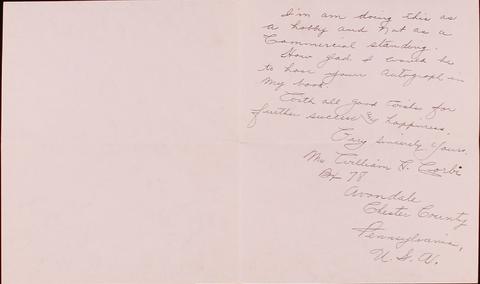 I'm am doing this as
a hobby and not as a
Commercial standing.
How glad I would be
to have your autograph in
my book.
With all good wishes for
further success & happiness.
Very sincerely yours.
Mr William H. Corbi
Bx 78
Avondale
Chester County
Pennsylvania,
U. S. A.